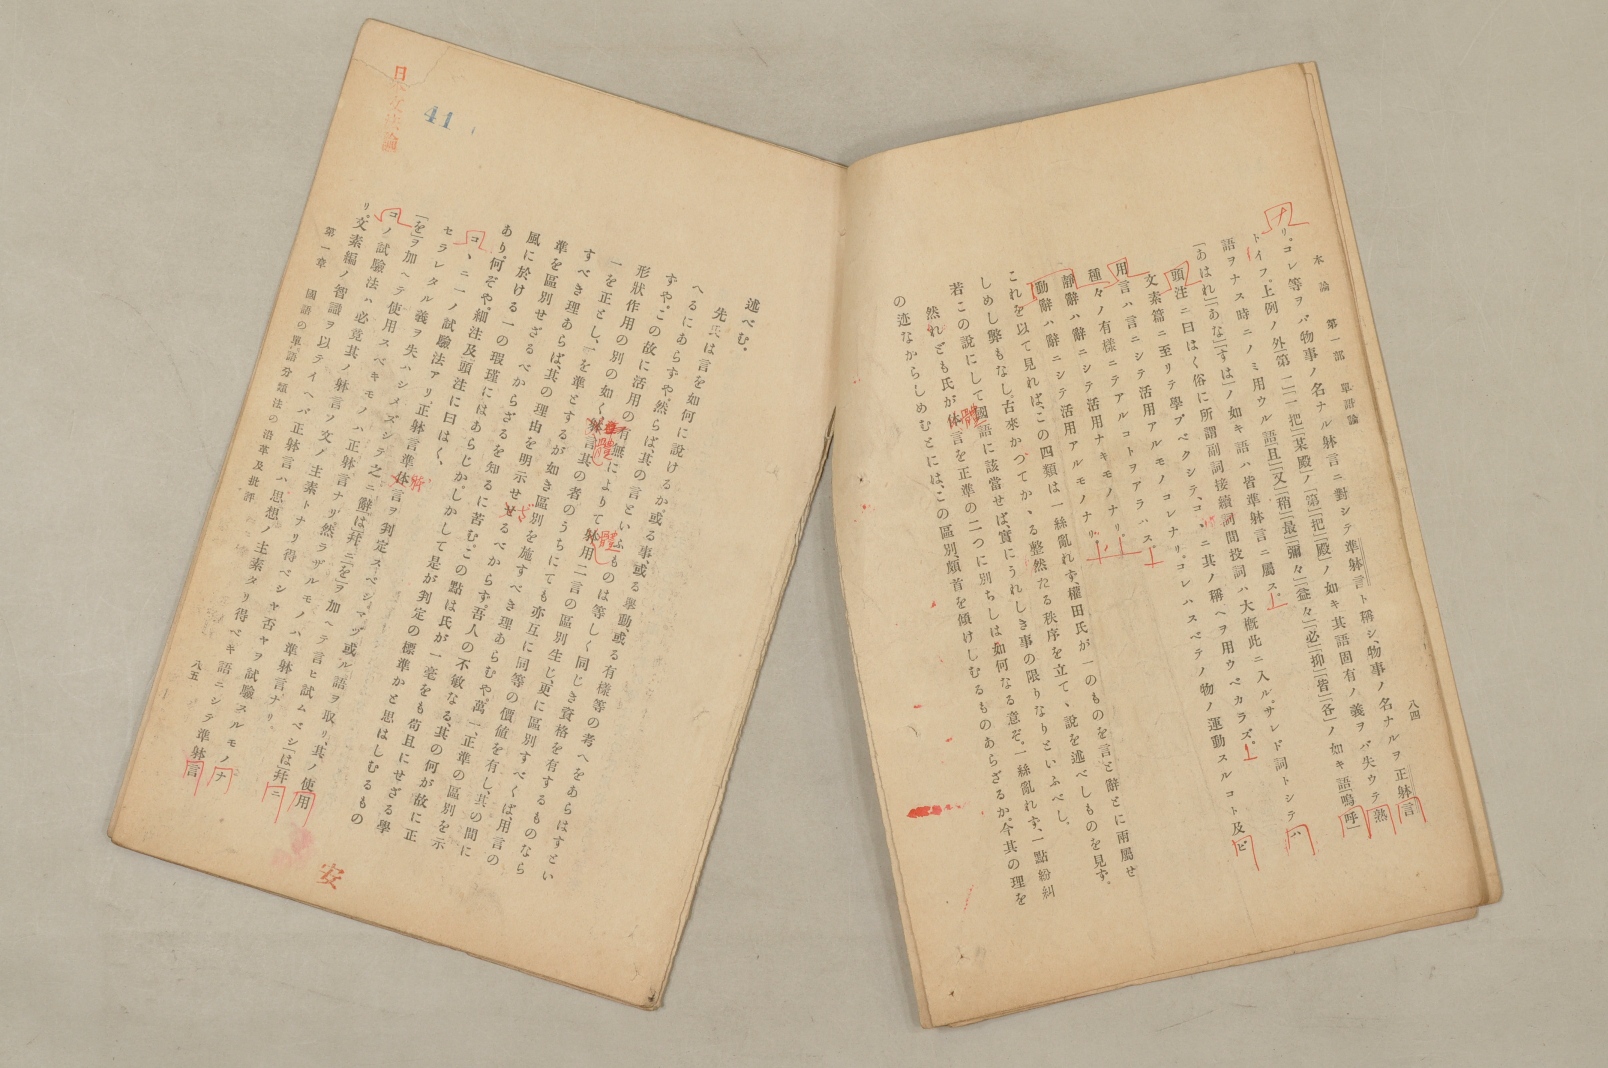 本論 第一部 單語論
八四
リ。コレ等ヲバ物事ノ名ナル躰言ニ對シテ準躰言ト稱シ、物事ノ名ナルヲ正躰言
トイフ。上例ノ外「第一」「二」「把」「某殿」ノ「第」「把」「殿」ノ如キ其語固有ノ義ヲバ失ウテ熟
語ヲナス時ニノミ用ウル語、「且」「又」「稍」「最」「彌々」「益々」「必」「抑」「皆」「各」ノ如キ語、「嗚呼」
「あはれ」「あな」「すは」ノ如キ語ハ皆準躰言ニ屬ス。
頭注ニ曰はく俗に所謂副詞接續詞間投詞ハ大槪此ニ入ル。サレド詞トシテハ
文素篇ニ至リテ學ブベクシテ、コヽニ其ノ稱ヘヲ用ウベカラズ。
用言ハ言ニシテ活用アルモノコレナリ。コレハスベテノ物ノ運動スルコト及ビ
種々ノ有樣ニテアルコトヲアラハス。
靜辭ハ辭ニシテ活用ナキモノナリ。
動辭ハ辭ニシテ活用アルモノナリ。
これを以て見れば、この四類は一絲亂れず、權田氏が一のものを言と辭とに兩屬せ
しめし弊もなし。古來かつてかゝる整然たる秩序を立てゝ說を述べしものを見ず。
若この說にして國語に該當せば、實にうれしき事の限りなりといふべし。
然れども氏が体言を正準の二つに別ちしは如何なる意ぞ。一絲亂れず、一點紛糾
の迹なからしめむとには、この區別、頗首を傾けしむるものあらざるか。今其の理を
體
述べむ。
先氏は言を如何に說けるか。或る事、或る擧動或る有樣等の考へをあらはすとい
へるにあらずや。然らば、其の言といふものは等しく同じき資格を有するものなら
ずや。この故に活用の有無によりて躰用二言の區別生じ、更に區別すべくば、用言の
形狀作用の別の如く、躰言其の者のうちにても亦互に同等の價値を有し、其の間に
一を正とし、一を準とするが如き區別を施すべき理あらむや。萬一、正準の區別を示
すべき理あらば、其の理由を明示せせるべからず。吾人の不敏なる、其の何が故に正
準を區別せざるべからざるを知るに苦む。この點は氏が一毫をも苟且にせざる學
風に於ける一の瑕瑾にはあらじか。しかして是が判定の標準かと思はしむるもの
あり。何ぞや。細注及頭注に曰はく、
コヽニ一ノ試驗法アリ、正躰言準体言ヲ判定スベシ。マヅ或ル語ヲ取リ、其ノ使用
セラレタル義ヲ失ハシメズシテ之ニ辭「は」拜ニ「を」ヲ加ヘテ言ヒ試ムベシ「は」拜ニ
「を」ヲ加ヘテ使用スベキモノハ正躰言ナリ然ラザルモノハ準躰言ナリ。
コノ試驗法ハ必竟其ノ躰言ソ文ノ主素トナリ得ベシヤ否ヤヲ試驗スルモノナ
リ。文素編ノ智識ヲ以テイヘバ正躰言ハ思想ノ主素タリ得ベキ語ニシテ準躰言
第一章 國語の單語分類法の沿革及批評
八五
體
體
ざ
41
安